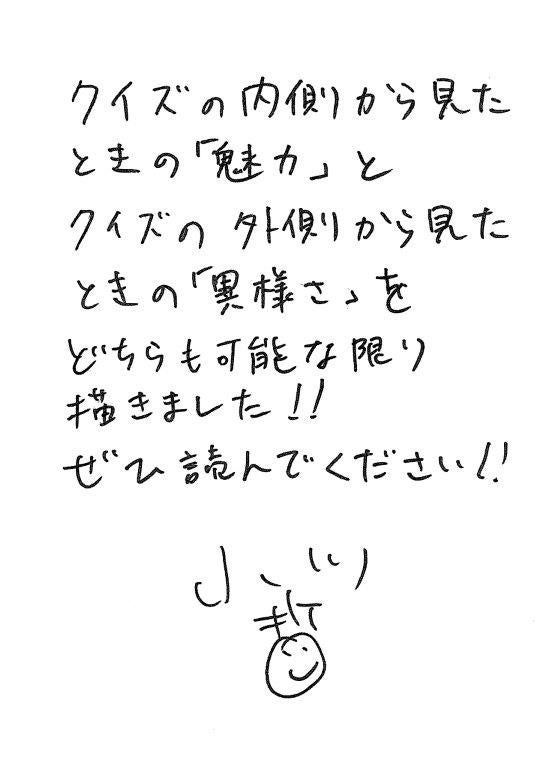 クイズの内側から見た
ときの「魅力」と
クイズの外側から見た
ときの「異様さ」を
どちらも可能な限り
描きました!!
ぜひ読んでください!!